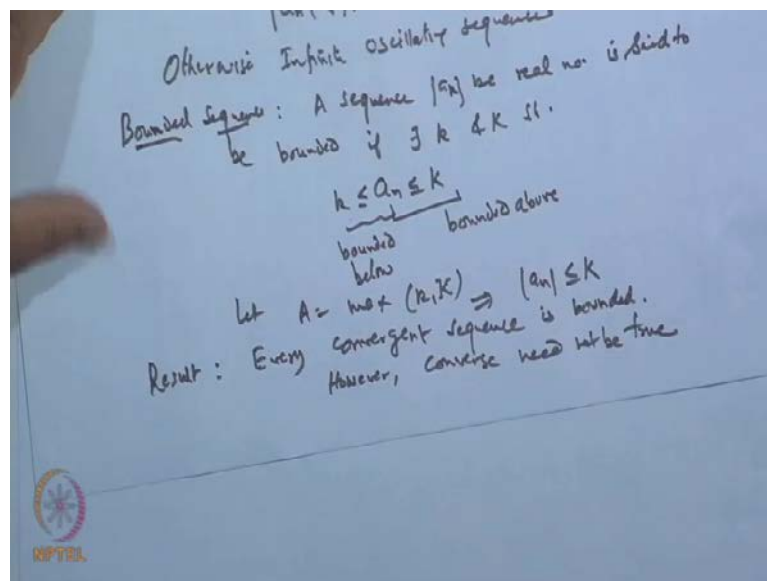 Otherwise Infinite oscillating sequence
Bounded Sequence : A sequence {an} be real no. is said to
be bounded if ∃ k & K st.
k ≤ an ≤ K
bounded below
bounded above
Let A = max (k, K) ⇒ |an| ≤ K
Result : Every convergent sequence is bounded.
However, converse need not be true
NPTEL